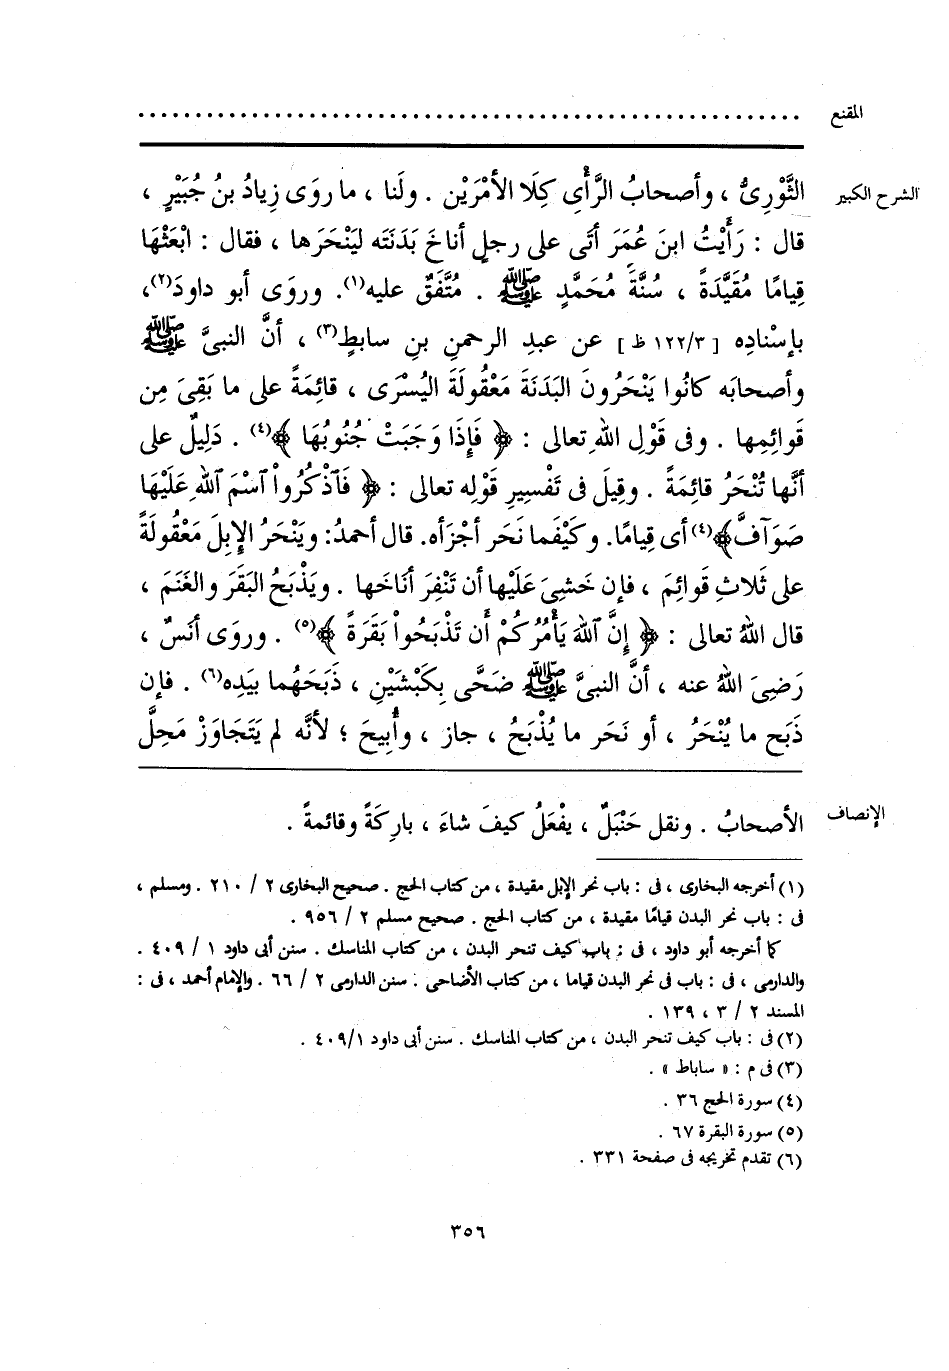 المقنع ........................................................
الشرح الكبير الثَّوْرِىُّ ، وأصحابُ الرَّأْىِ كِلَا الأمْرَيْن . ولَنا ، ما روَى زِيادُ بنُ جُبَيْرٍ ،
قال : رَأَيْتُ ابنَ عُمَرَ أتَى على رجلٍ أناخَ بَدَنَتَه ليَنْحَرَها ، فقال : ابْعَثْهَا
قِيامًا مُقَيَّدَةً ، سُنَّةَ مُحَمَّدٍ ﷺ . مُتَّفَقٌ عليه(١). وروَى أبو داودَ(٢)،
بإسْنادِه [ ١٢٢/٣ ظ ] عن عبدِ الرحمنِ بنِ سابطٍ(٣) ، أنَّ النبىَّ ﷺ
وأصحابَه كانُوا يَنْحَرُونَ البَدَنَةَ مَعْقُولَةَ اليُسْرَى ، قائِمَةً على ما بَقِىَ مِن
قَوائِمِها . وفى قَوْلِ اللهِ تعالى : ﴿ فَإِذَا وَجَبَتْ جُنُوبُهَا ﴾(٤) . دَلِيلٌ على
أنَّها تُنْحَرُ قائِمَةً . وقِيلَ فى تَفْسِيرِ قَوْلِه تعالى : ﴿ فَٱذْكُرُواْ ٱسْمَ ٱللهِ عَلَيْهَا
صَوَآفَّ﴾(٤) أى قِيامًا. وكَيْفَما نَحَر أجْزَأه. قال أحمدُ: ويَنْحَرُ الإِبِلَ مَعْقُولَةً
على ثَلاثِ قَوائِمَ ، فإن خَشِىَ عَلَيْها أن تَنْفِرَ أناخَها . ويَذْبَحُ البَقَرَ والغَنَمَ ،
قال اللهُ تعالى : ﴿ إِنَّ ٱللهَ يَأْمُرُكُمْ أَن تَذْبَحُواْ بَقَرَةً ﴾(٥) . وروَى أنَسٌ ،
رَضِىَ اللهُ عنه ، أنَّ النبىَّ ﷺ ضَحَّى بِكَبْشَيْنِ ، ذَبَحَهُما بيَدِه(٦) . فإن
ذَبَح ما يُنْحَرُ ، أو نَحَر ما يُذْبَحُ ، جاز ، وأُبِيحَ ؛ لأنَّه لم يَتَجَاوَزْ مَحِلَّ
الإنصاف الأصحابُ . ونقل حَنْبَلٌ ، يفْعَلُ كيفَ شاءَ ، بارِكَةً وقائمةً .
(١) أخرجه البخارى ، فى : باب نحر الإبل مقيدة ، من كتاب الحج . صحيح البخارى ٢ / ٢١٠ . ومسلم ،
فى : باب نحر البدن قيامًا مقيدة ، من كتاب الحج . صحيح مسلم ٢ / ٩٥٦ .
كما أخرجه أبو داود ، فى : باب كيف تنحر البدن ، من كتاب المناسك . سنن أبى داود ١ / ٤٠٩ .
والدارمى ، فى : باب فى نحر البدن قياما ، من كتاب الأضاحى . سنن الدارمى ٢ / ٦٦ . والإمام أحمد ، فى :
المسند ٢ / ٣ ، ١٣٩ .
(٢) فى : باب كيف تنحر البدن ، من كتاب المناسك . سنن أبى داود ٤٠٩/١ .
(٣) فى م : « ساباط » .
(٤) سورة الحج ٣٦ .
(٥) سورة البقرة ٦٧ .
(٦) تقدم تخريجه فى صفحة ٣٣١ .
٣٥٦